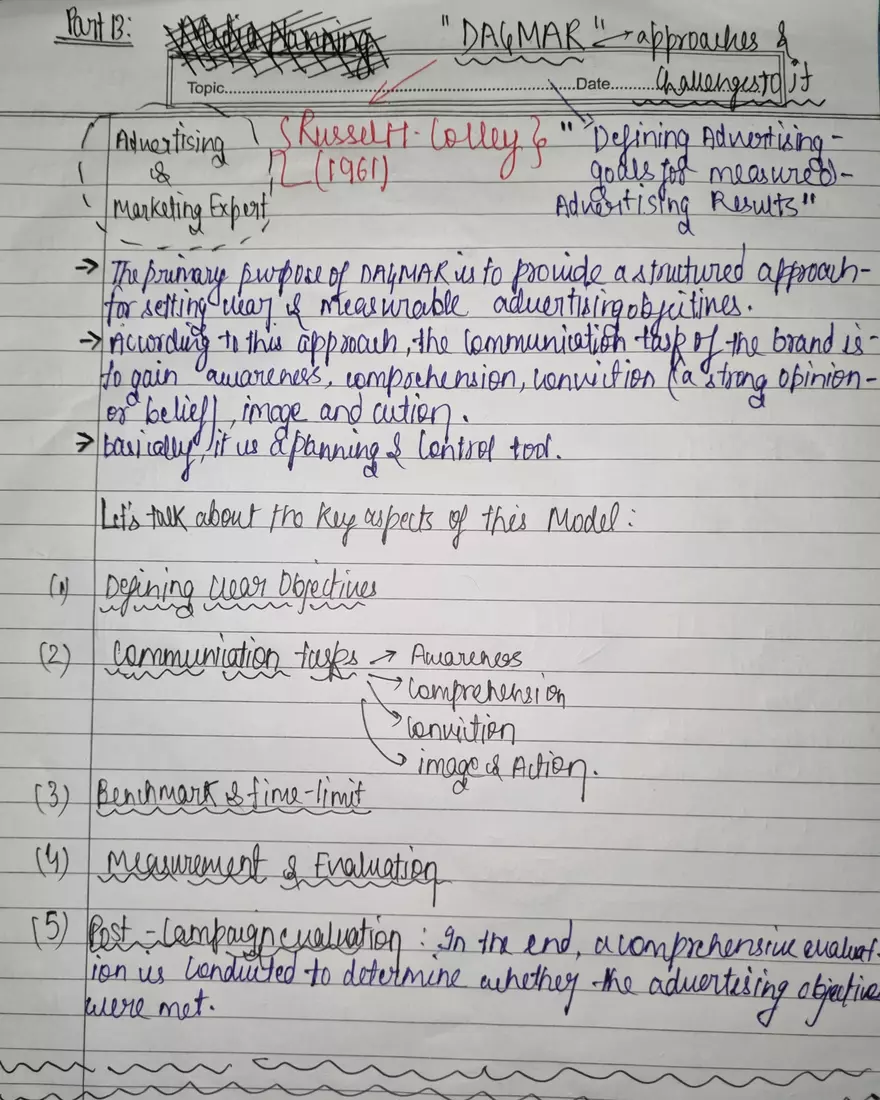 Part 13:
"DAGMAR" → approaches &
Challenges to it
Topic.......... Date..........
Advertising
&
Marketing Expert
{Russell H. Colley}
(1961)
"Defining Advertising-
goals for measured-
Advertising Results"
→ The primary purpose of DAGMAR is to provide a structured approach-
for setting clear & measurable advertising objectines.
→ According to this approach, the communication task of the brand is-
to gain awareness, comprehension, conviction (a strong opinion-
or belief), image and action.
→ basically, it is a planning & Control tool.
Let's talk about the key aspects of this Model:
(1) Defining clear Objectives
(2) Communication tasks → Awareness
→ Comprehension
→ Conviction
→ image & Action.
(3) Benchmark & time-limit
(4) Measurement & Evaluation
(5) Post-Campaign evaluation: In the end, a comprehensive evaluat-
ion is conducted to determine whether the advertising objective
were met.